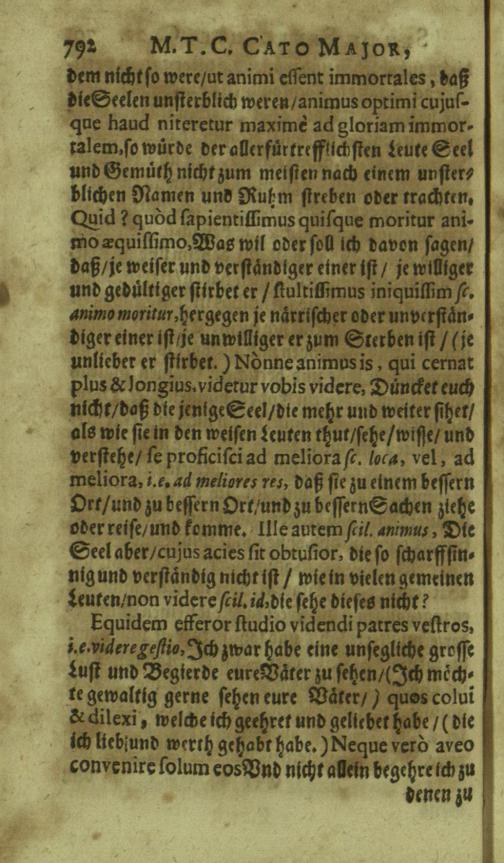 792 M. T. C. CATO MAJOR,
dem nicht so were/ut animi essent immortales, daß
die Seelen unsterblich weren/animus optimi cujus-
que haud niteretur maximè ad gloriam immor-
talem, so würde der allerfürtrefflichsten Leute Seel
und Gemüth nicht zum meisten nach einem unster-
blichen Namen und Ruhm streben oder trachten.
Quid? quòd sapientissimus quisque moritur ani-
mo æquissimo, Was wil oder soll ich davon sagen/
daß/je weiser und verständiger einer ist/ je williger
und gedültiger stirbet er/ stultissimus iniquissim sc.
animo moritur, hergegen je närrischer oder unverstän-
diger einer ist/je unwilliger er zum Sterben ist/ (je
unlieber er stirbet.) Nònne animus is, qui cernat
plus & longius, videtur vobis videre, Düncket euch
nicht/daß die jenige Seel/die mehr und weiter sihet/
als wie sie in den weisen Leuten thut/sehe/wisse/ und
verstehe/ se proficisci ad meliora sc. loca, vel, ad
meliora, i.e. ad meliores res, daß sie zu einem bessern
Ort/und zu bessern Ort/und zu bessern Sachen ziehe
oder reise/und komme. Ille autem scil. animus, Die
Seel aber/cujus acies sit obtusior, die so scharffsin-
nig und verständig nicht ist/ wie in vielen gemeinen
Leuten/non videre scil. id, die sehe dieses nicht?
Equidem efferor studio videndi patres vestros,
i.e. videre gestio, Ich zwar habe eine unsegliche grosse
Lust und Begierde eure Väter zu sehen/(Ich möch-
te gewaltig gerne sehen eure Väter/) quos colui
& dilexi, welche ich geehret und geliebet habe/(die
ich lieb/und werth gehabt habe.) Neque verò aveo
convenire solum eos Vnd nicht allein begehre ich zu
denen zu